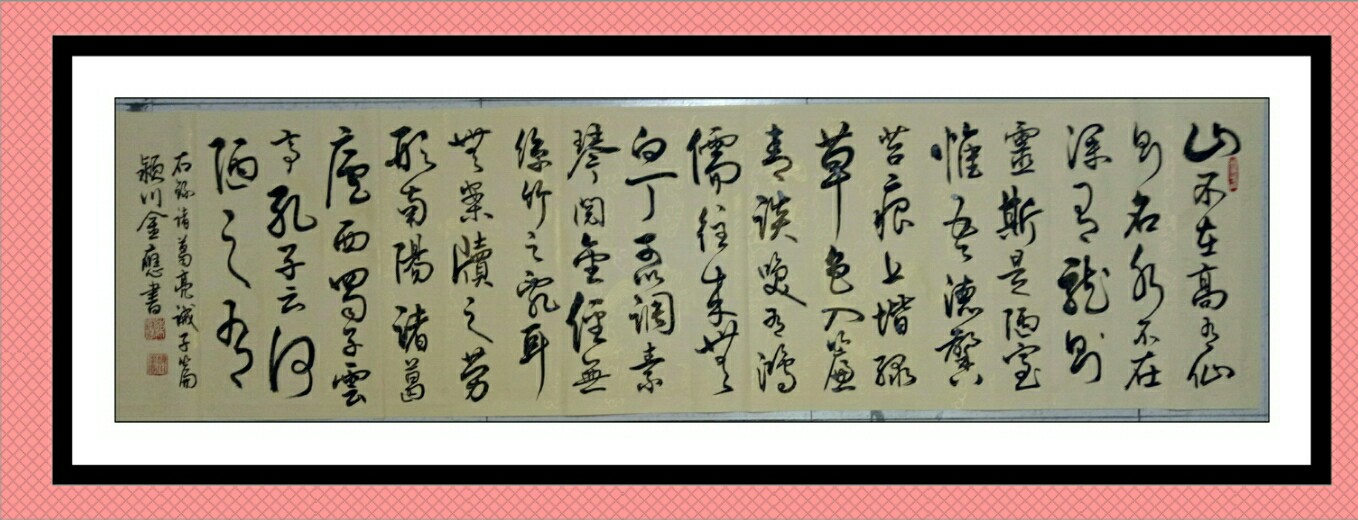 山不在高有仙
則名水不在
深有龍則
靈斯是陋室
惟吾德馨
苔痕上堦綠
草色入簾
青談笑有鴻
儒往来無
白丁可以調素
琴閱金經無
絲竹之亂耳
無案牘之勞
形南陽諸葛
廬西蜀子雲
亭孔子云何
陋之有
右錄諸葛亮誡子篇
穎川金應書